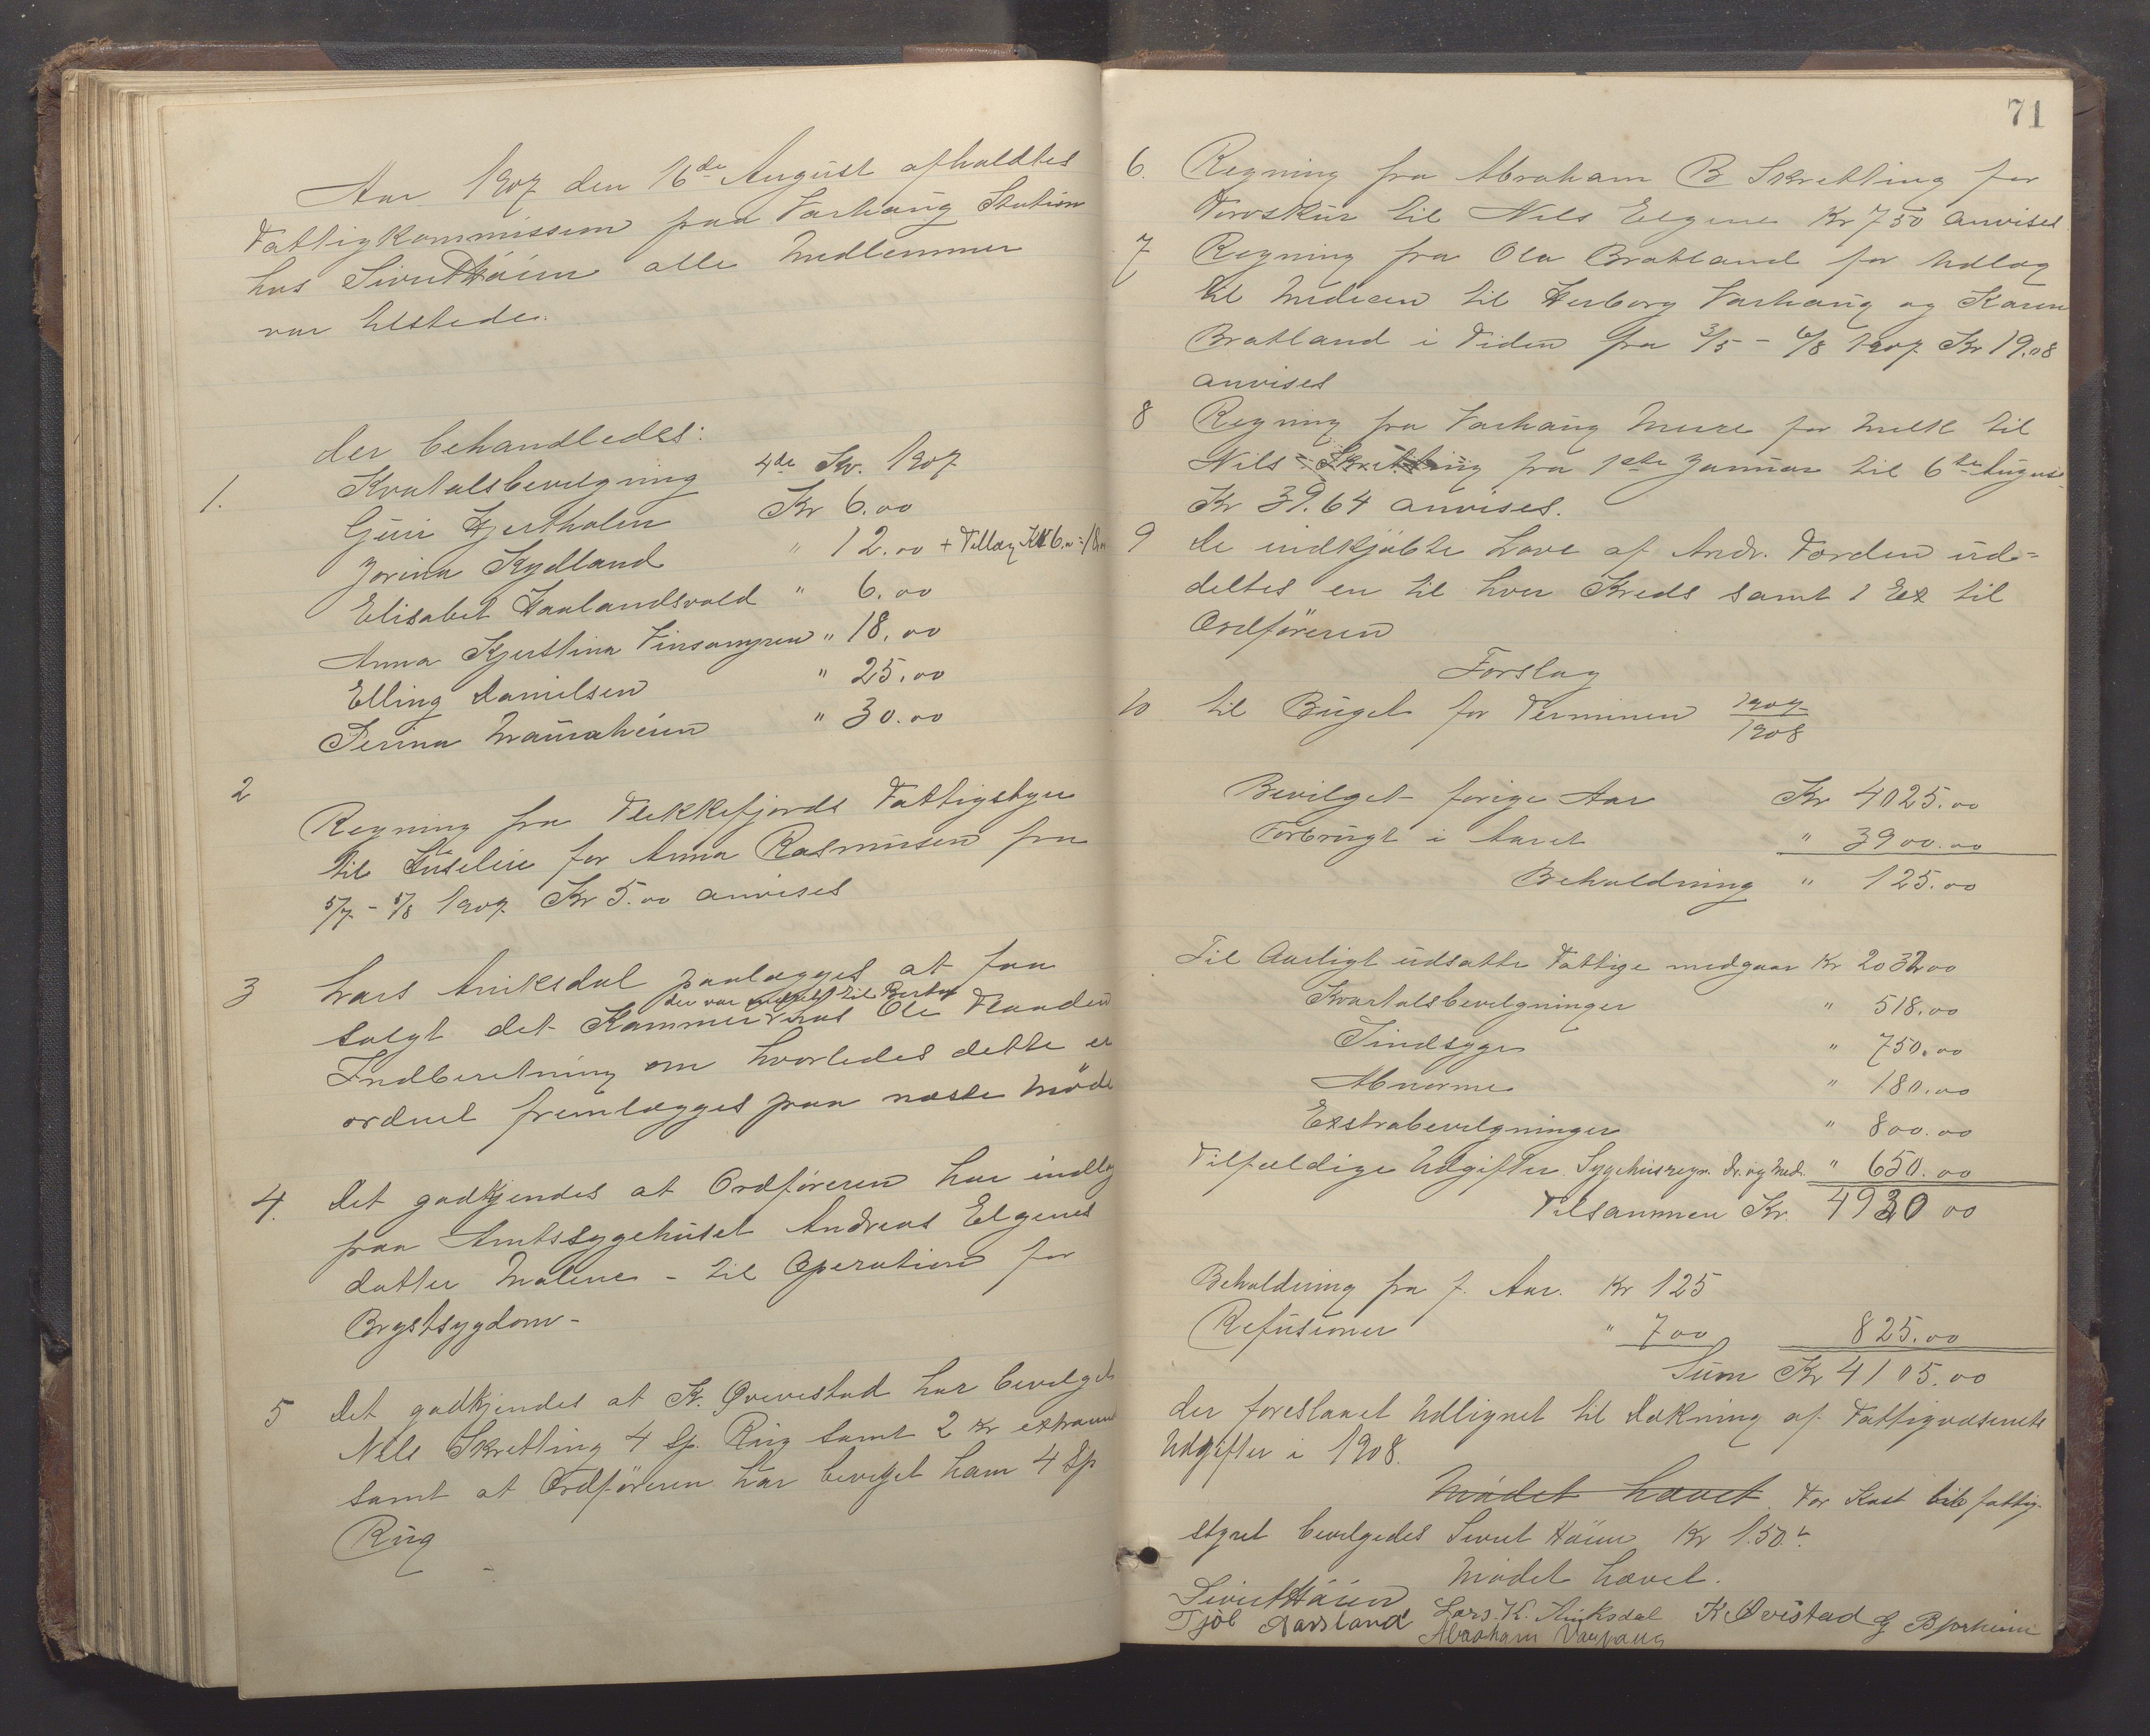 Aar 1907 den 16de August afholdtes
Fattigkommission paa Varhaug Station
hos Sivert Höien alle Medlemmer
var tilstede.
der behandledes:
1. Kvatalsbevilgning 4de Kv. 1907
Guri Hjertholen Kr 6.00
Jorina Kydland " 12.00 + Tillæg Kr 6.00 = 18.00
Elisabet Haalandsvald " 6.00
Anna Kjerstina " 18.00
Elling Danielsen " 25.00
Serina " 30.00
2
Regning fra Flekkefjords Fattigstyre
til Husleie for Anna Rasmusen fra
5/7 - 5/8 1907. Kr 5.00 anvises
3 Lars Aniksdal paalægges at faa
der var til
solgt det Kammer hos Ole
Indberetning om hvorledes dette er
ordnet fremlægges paa næste Möde
4. Det godkjendes at Ordföreren har indlag
paa Amtssygehuset Andreas Elgenes
datter Malene - til Operation for
Brystsygdom -
5 Det godkjendes at K. Qvevestad har bevilget
Nils Skretting 4 Sp. Rug samt 2 kr
samt at Ordföreren har bevilget ham 4 Sp
Rug
71
6. Regning fra Abraham B Skretting for
Torvskur til Nils Elgene Kr 7 50 anvises
7 Regning fra Ola Bratland for Udlæg
til Medicin til Herborg Varhaug og Karen
Bratland i Tiden fra 3/5 - 6/8 1907 Kr 19.08
anvises
8 Regning fra Varhaug Meieri for Melk til
Nils Skretting fra 1ste Januar til 6te August
Kr 39.64 anvises.
9 De indkjøbte Love af Andr. Forden ud=
deltes en til hver Kreds samt 1 Ex til
Ordföreren
Forslag
10 til Buget for Terminen 1907/1908
Bevilget forige Aar Kr 4025.00
Forbrugt i Aaret " 3900.00
Beholdning " 125.00
Til Aarligt udsatte Fattige medgaar Kr 2032 00
Kvartalsbevilgninger " 518.00
Sindsyge " 750.00
Abnorme " 180.00
Exstrabevilgninger " 800.00
Tilfældige Udgifter. Sygehusregn. Dr. og Med. " 650.00
Tilsammen Kr. 4930 00
Beholdning fra f. Aar. Kr 125
Refusioner " 700 825.00
Sum Kr 4105.00
der foreslaaet Udlignet til Dækning af Fattigvæsenets
Udgifter i 1908.
Mödet hævet. For Kost til fattig-
styret bevilgedes Sivert Höien Kr 1.50.
Mödet hævet.
Sivert Höien Lars. K. Aniksdal K Qvistad G Bjorheim
Tjöl Aarsland Abraham Varhaug